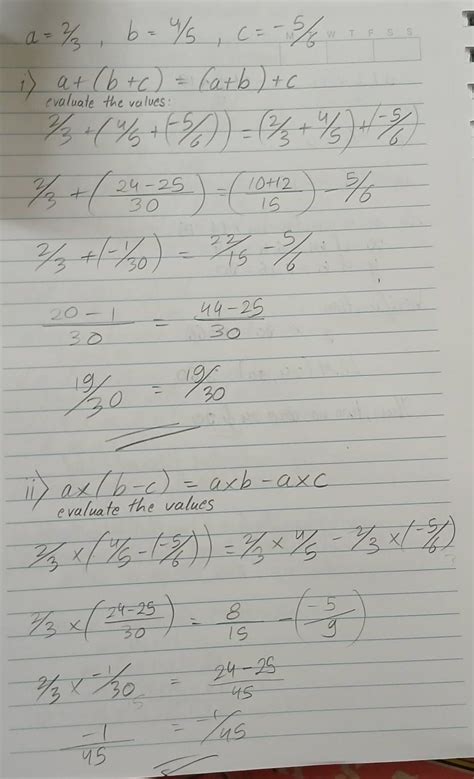 a = 2/3 , b = 4/5 , c = -5/6
M T W T F S S
i) a+(b+c) = (a+b)+c
evaluate the values:
2/3 + (4/5 + (-5/6)) = (2/3 + 4/5) + (-5/6)
2/3 + (24-25/30) = (10+12/15) - 5/6
2/3 + (-1/30) = 22/15 - 5/6
20-1/30 = 44-25/30
19/30 = 19/30
ii) a×(b-c) = a×b - a×c
evaluate the values
2/3 × (4/5 - (-5/6)) = 2/3 × 4/5 - 2/3 × (-5/6)
2/3 × (24-25/30) = 8/15 - (-5/9)
2/3 × -1/30 = 24-25/45
-1/45 = -1/45